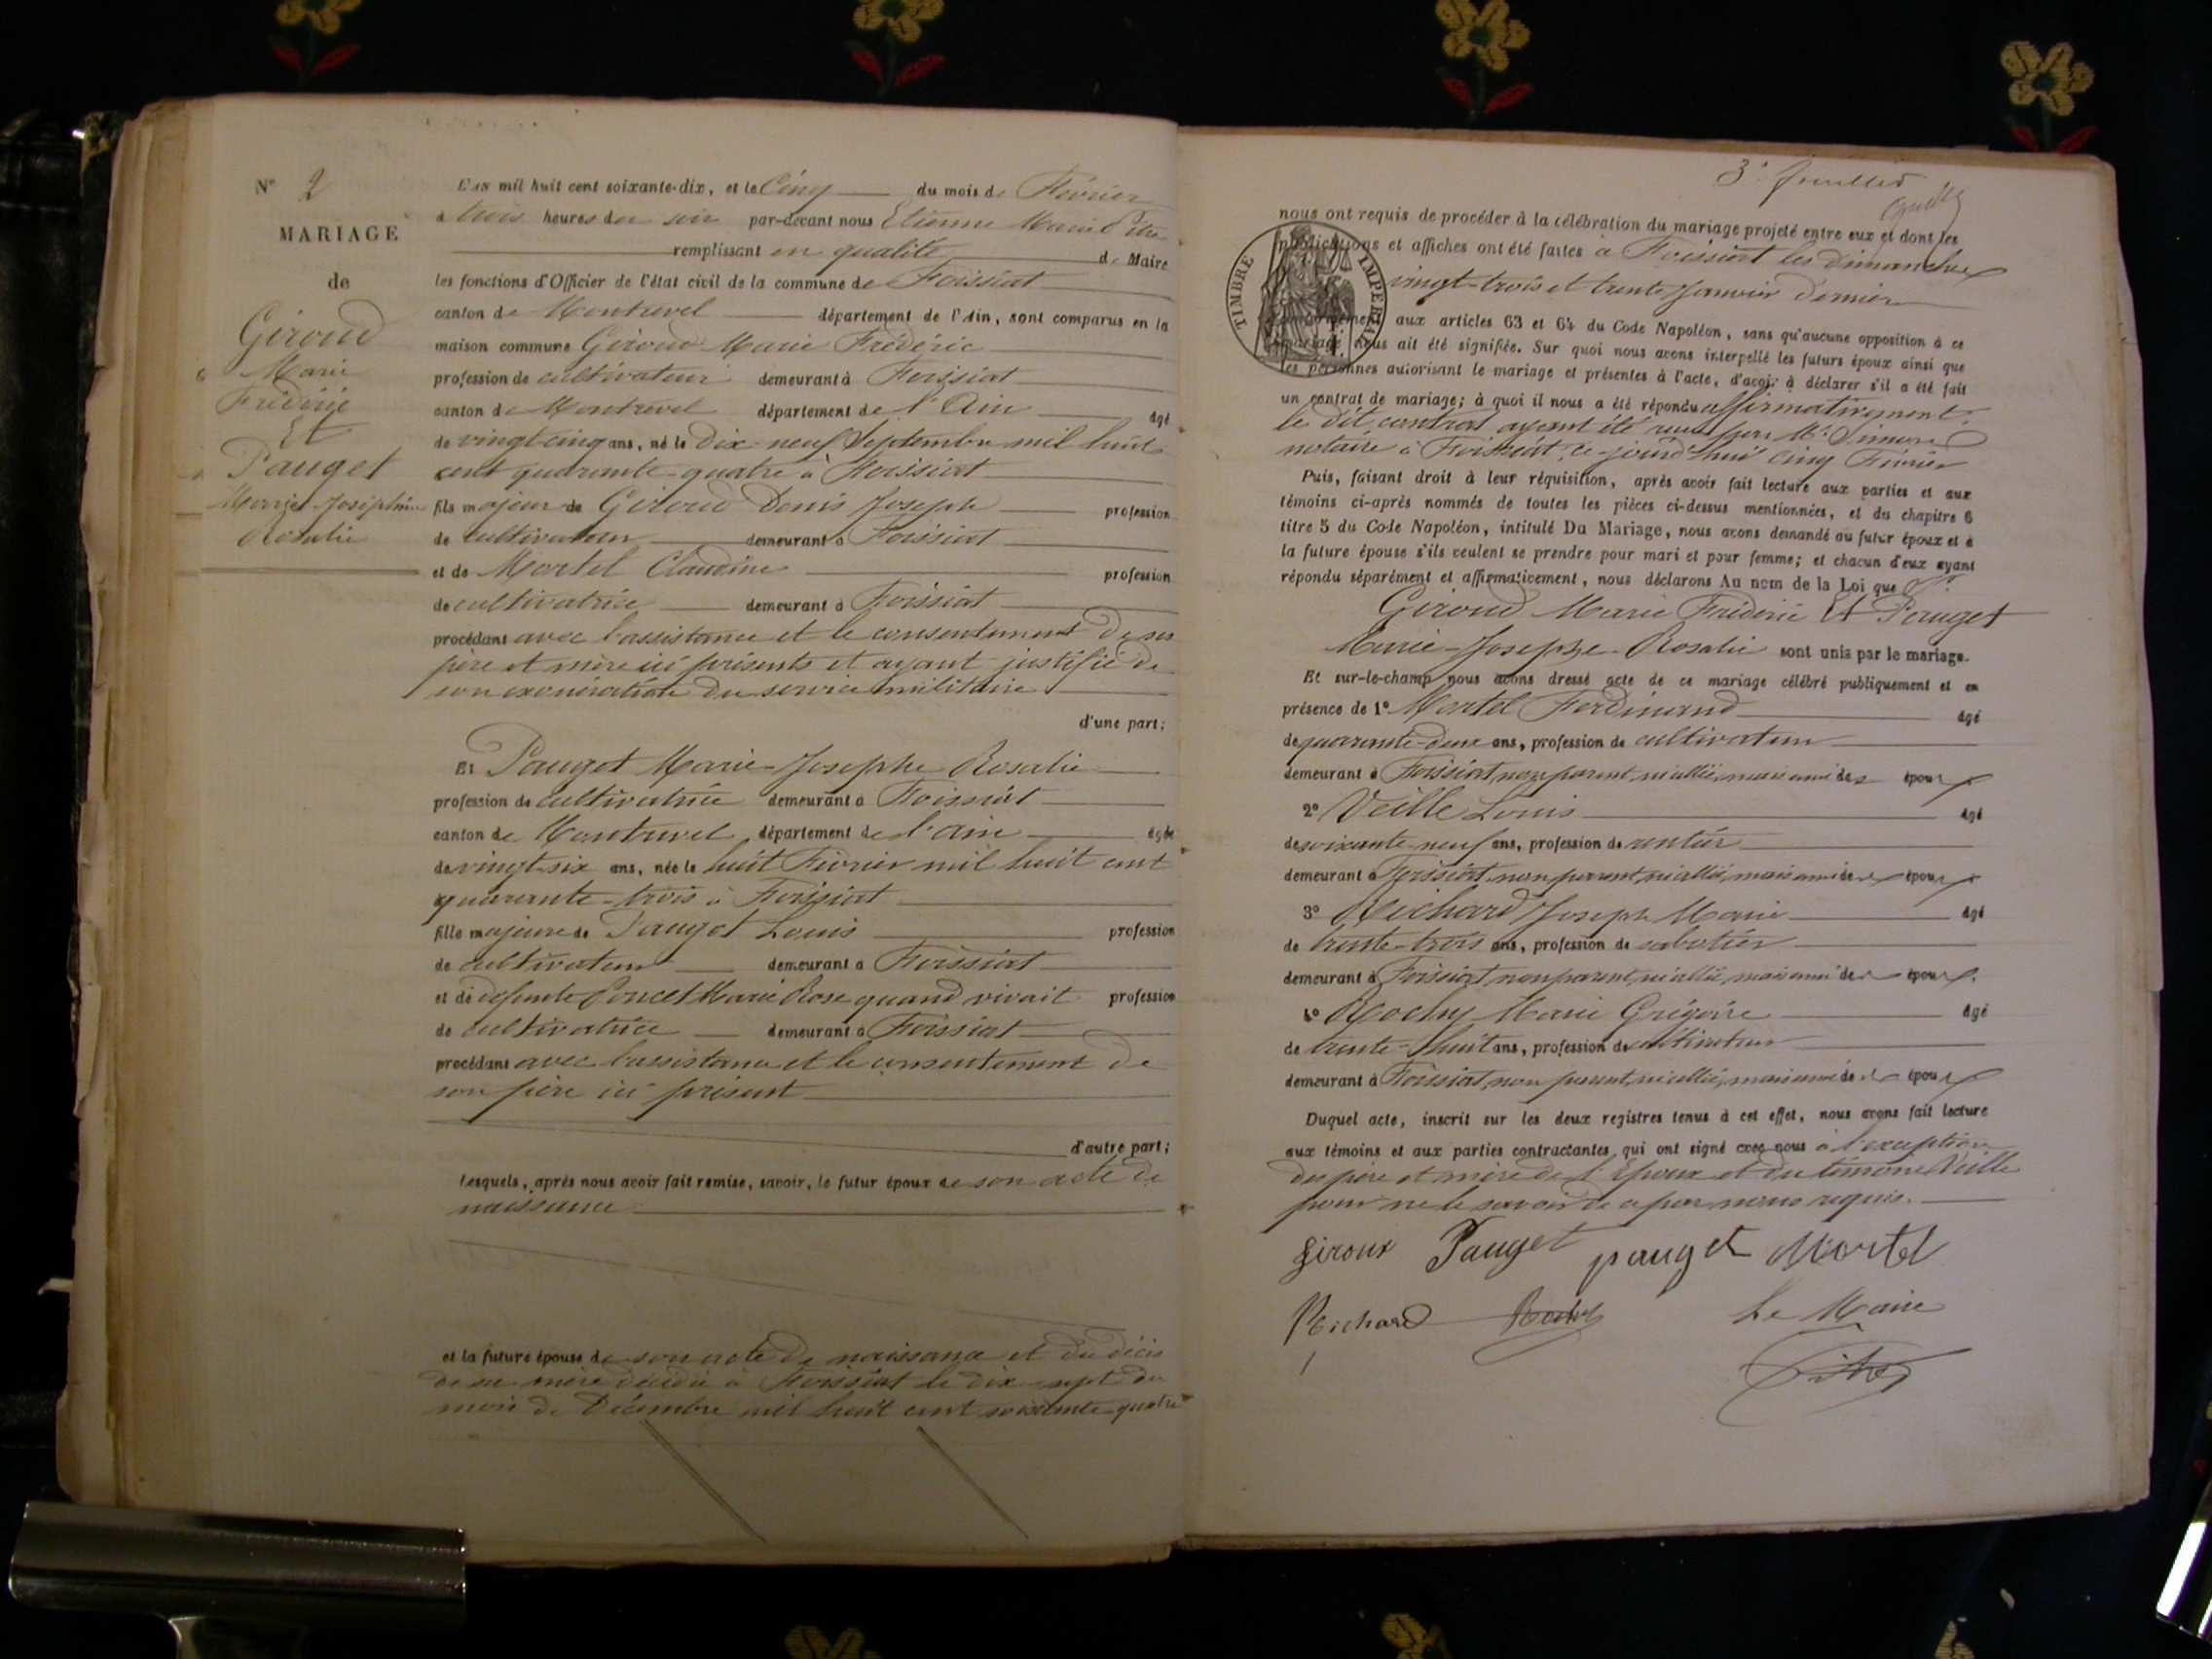 N° 2
MARIAGE
de
Giroud
Marie
Fréderic
Et
Pauget
Marie-Joséphine
Rosalie
L'an mil huit cent soixante-dix, et le Cinq du mois de Février
à trois heures du soir par-devant nous Etienne Marie Pitre
remplissant en qualité de Maire
les fonctions d'Officier de l'état civil de la commune de Foissiat
canton de Montrevel département de l'Ain, sont comparus en la
maison commune Giroud Marie Frédéric
profession de cultivateur demeurant à Foissiat
canton de Montrevel département de l'Ain âgé
de vingt cinq ans, né le Dix-neuf Septembre mil huit
cent quarante-quatre à Foissiat
fils majeur de Giroud Denis Joseph profession
de cultivateur demeurant à Foissiat
et de Martel Claudine profession
de cultivatrice demeurant à Foissiat
procédant avec l'assistance et le consentement de ses
père et mère ici présents et ayant justifié de
son exonération du service militaire
d'une part;
Et Pauget Marie-Josephe Rosalie
profession de cultivatrice demeurant à Foissiat
canton de Montrevel département de l'ain âgée
de vingt-six ans, née le huit Février mil huit cent
quarante-trois à Foissiat
fille majeure de Pauget Louis profession
de cultivateur demeurant à Foissiat
et de défunte Poncet Marie Rose quand vivait profession
de cultivatrice demeurant à Foissiat
procédant avec l'assistance et le consentement de
son père ici présent
d'autre part;
Lesquels, après nous avoir fait remise, savoir, le futur époux de son acte de
naissance
et la future épouse de son acte de naissance et du décès
de sa mère décédée à Foissiat le dix-sept du
mois de Décembre mil huit cent soixante-quatre
3e feuillet
nous ont requis de procéder à la célébration du mariage projeté entre eux et dont les
publications et affiches ont été faites à Foissiat les dimanches
vingt-trois et trente Janvier dernier
TIMBRE IMPERIAL
conformément aux articles 63 et 64 du Code Napoléon, sans qu'aucune opposition à ce
mariage nous ait été signifiée. Sur quoi nous avons interpellé les futurs époux ainsi que
les personnes autorisant le mariage et présentes à l'acte, d'avoir à déclarer s'il a été fait
un contrat de mariage; à quoi il nous a été répondu affirmativement,
le dit contrat ayant été reçu par Me
notaire à Foissiat, ce-jourd'hui cinq Février
Puis, faisant droit à leur réquisition, après avoir fait lecture aux parties et aux
témoins ci-après nommés de toutes les pièces ci-dessus mentionnées, et du chapitre 6
titre 5 du Code Napoléon, intitulé Du Mariage, nous avons demandé au futur époux et à
la future épouse s'ils veulent se prendre pour mari et pour femme; et chacun d'eux ayant
répondu séparément et affirmativement, nous déclarons Au nom de la Loi que
Giroud Marie Fréderic Et Pauget
Marie-Josephe-Rosalie sont unis par le mariage.
Et sur-le-champ nous avons dressé acte de ce mariage célébré publiquement et en
présence de 1° Martel Ferdinand âgé
de quarante-deux ans, profession de cultivateur
demeurant à Foissiat, non parent, ni allié, mais ami des époux
2° Veille Louis âgé
de soixante-neuf ans, profession de rentier
demeurant à Foissiat non parent, ni allié, mais ami des époux
3° Richard Joseph Marie âgé
de trente-trois ans, profession de sabotier
demeurant à Foissiat non parent, ni allié, mais ami des époux
4° Rochy Marie Grégoire âgé
de trente-huit ans, profession de cultivateur
demeurant à Foissiat, non parent, ni allié, mais ami des époux
Duquel acte, inscrit sur les deux registres tenus à cet effet, nous avons fait lecture
aux témoins et aux parties contractantes qui ont signé avec nous à l'exception
des père et mère de l'Epoux et du témoin Veille
pour ne le savoir de ce par nous requis.
Giroux Pauget pauget Martel
Richard Rochy Le Maire
Pitre